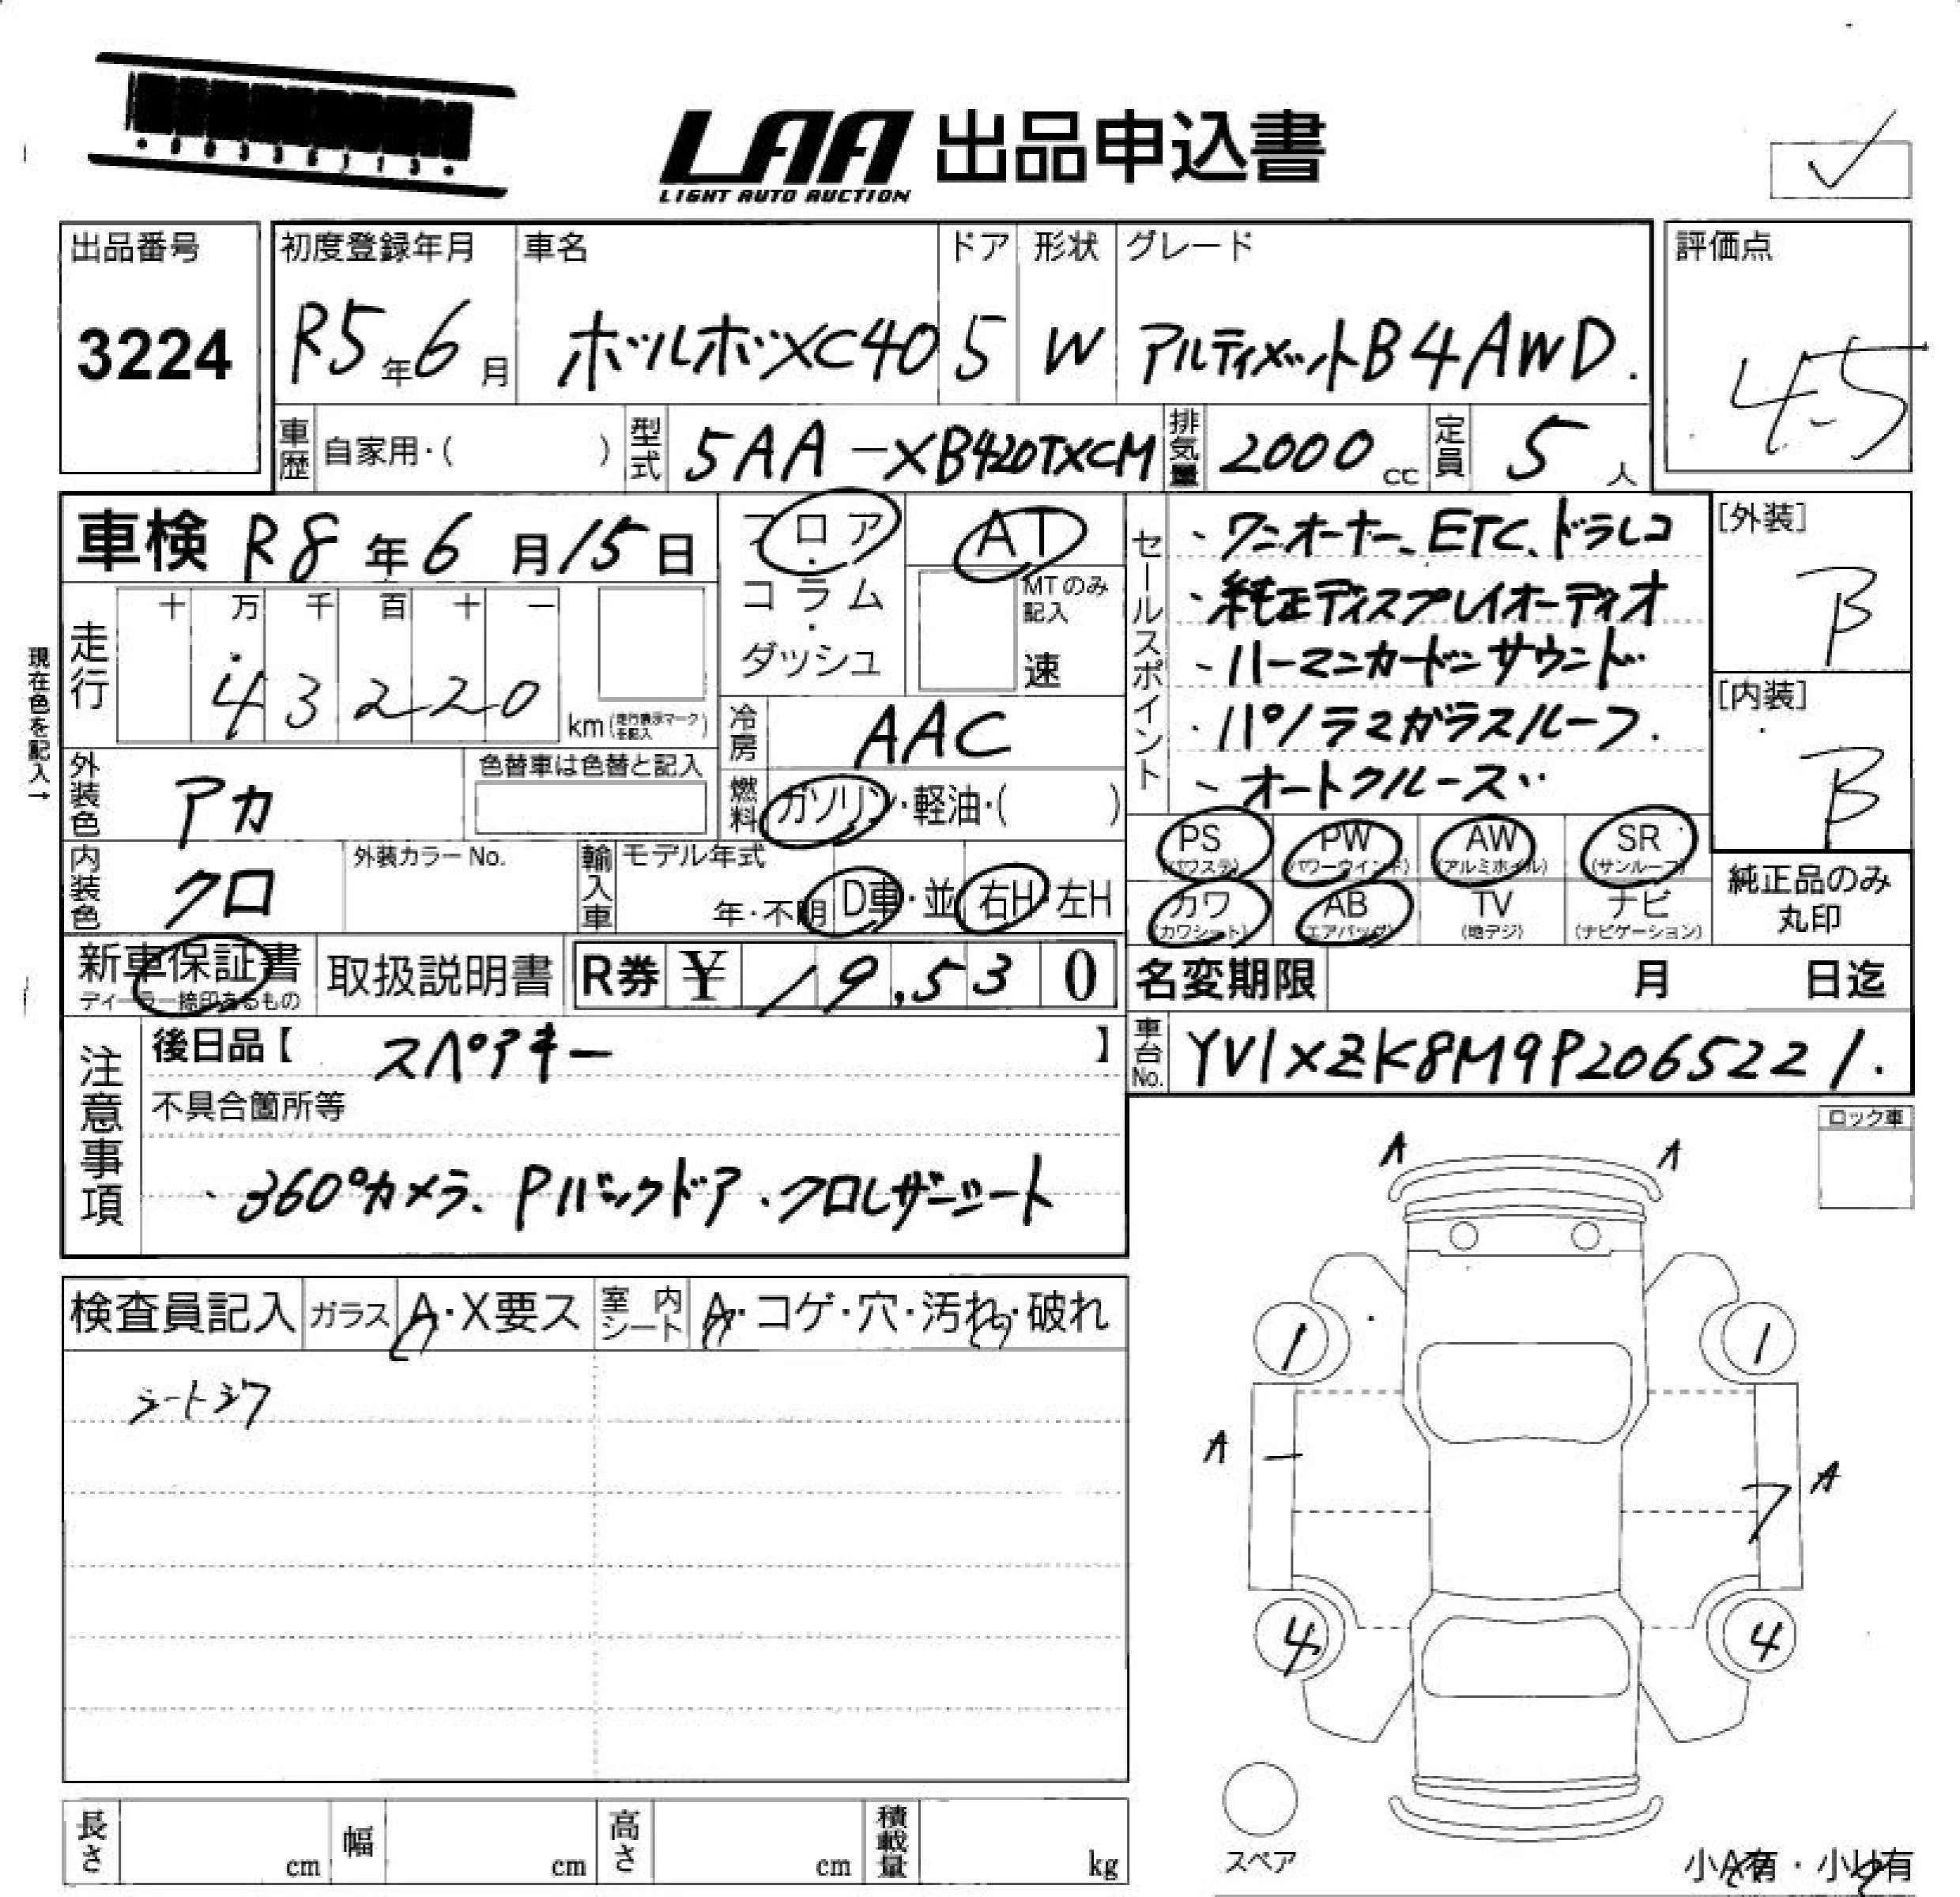 LAA 出品申込書
LIGHT AUTO AUCTION
出品番号
3224
初度登録年月
R5年6月
車名
ボルボXC40
ドア
5
形状
W
グレード
アルティメットB4AWD.
評価点
4.5
車歴
自家用・( )
型式
5AA-XB420TXCM
排気量
2000cc
定員
5人
車検 R8年6月15日
フロア・コラム・ダッシュ
AT
MTのみ記入
速
走行
十 万 千 百 十 一
43220
km(走行表示マークを記入)
冷房
AAC
現在色を記入→
外装色
アカ
色替車は色替と記入
燃料
ガソリン・軽油・( )
内装色
クロ
外装カラーNo.
輸入車
モデル年式
年・不明
D車・並
右H・左H
セールスポイント
・ワンオーナー、ETC、ドラレコ
・純正ディスプレイオーディオ
・ハーマンカードンサウンド
・パノラマガラスルーフ.
・オートクルーズ
[外装]
B
[内装]
B
PS (パワステ)
PW (パワーウインド)
AW (アルミホイル)
SR (サンルーフ)
カワ (カワシート)
AB (エアバッグ)
TV (地デジ)
ナビ (ナビゲーション)
純正品のみ
丸印
新車保証書
ディーラー捺印あるもの
取扱説明書
R券 ¥19,530
名変期限 月 日迄
注意事項
後日品【 スペアキー 】
不具合箇所等
・360°カメラ、Pバックドア・クロレザーシート
車台No.
YV1XZK8M9P2065221.
ロック車
検査員記入
ガラス A・X要ス
室内シート A・コゲ・穴・汚れ・破れ
シートシワ
A A
1 1
A A
4 4
スペア
小A有・小U有
長さ cm
幅 cm
高さ cm
積載量 kg